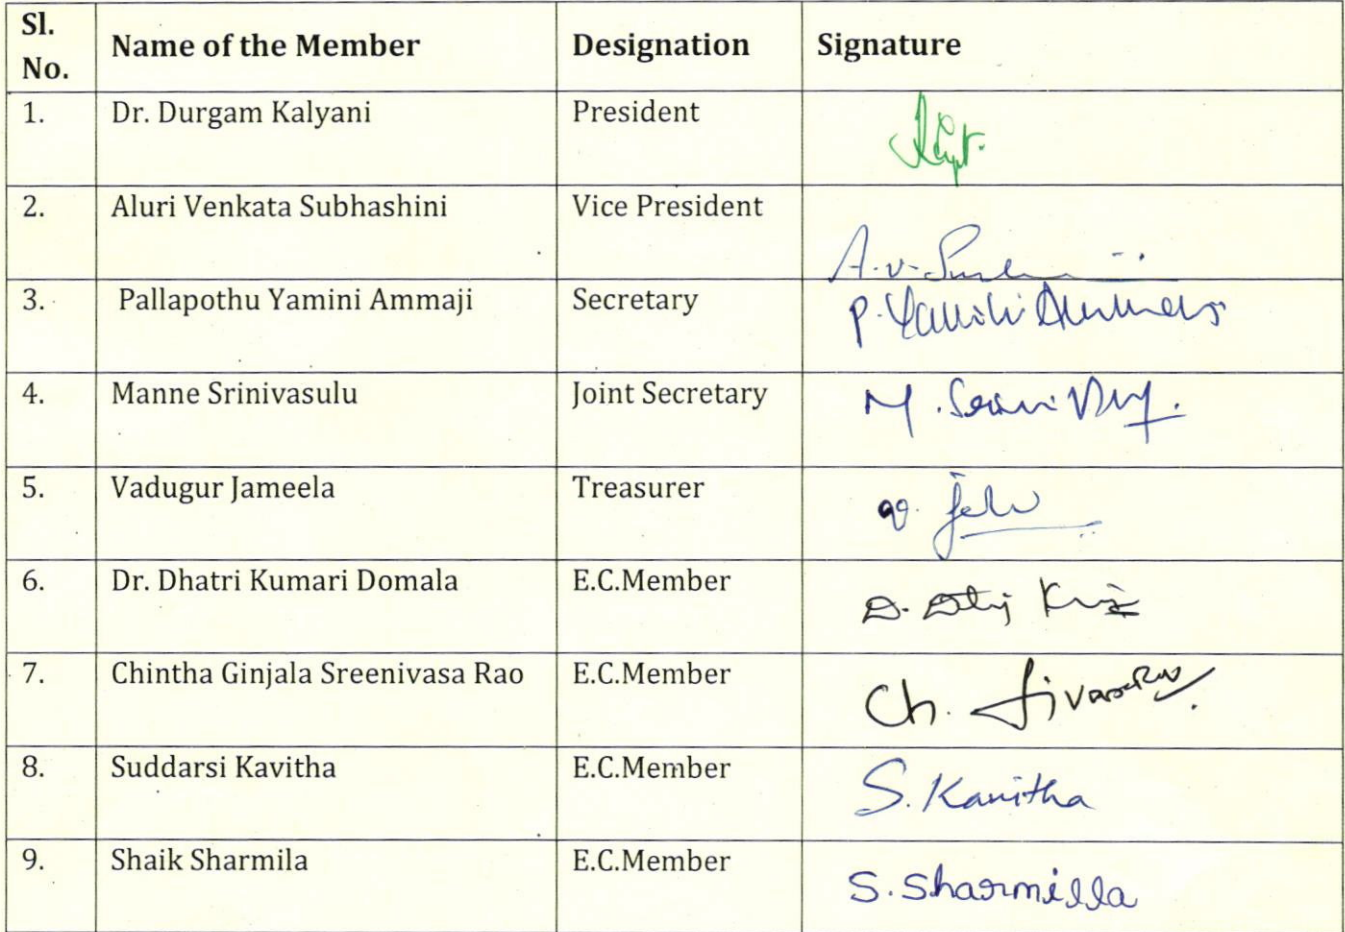 Sl. No. Name of the Member Designation Signature
1. Dr. Durgam Kalyani President
2. Aluri Venkata Subhashini Vice President
A.v.
3. Pallapothu Yamini Ammaji Secretary
P. Yamini
4. Manne Srinivasulu Joint Secretary
M.
5. Vadugur Jameela Treasurer
6. Dr. Dhatri Kumari Domala E.C.Member
D.
7. Chintha Ginjala Sreenivasa Rao E.C.Member
Ch.
8. Suddarsi Kavitha E.C.Member
S. Kavitha
9. Shaik Sharmila E.C.Member
S. Sharmilla